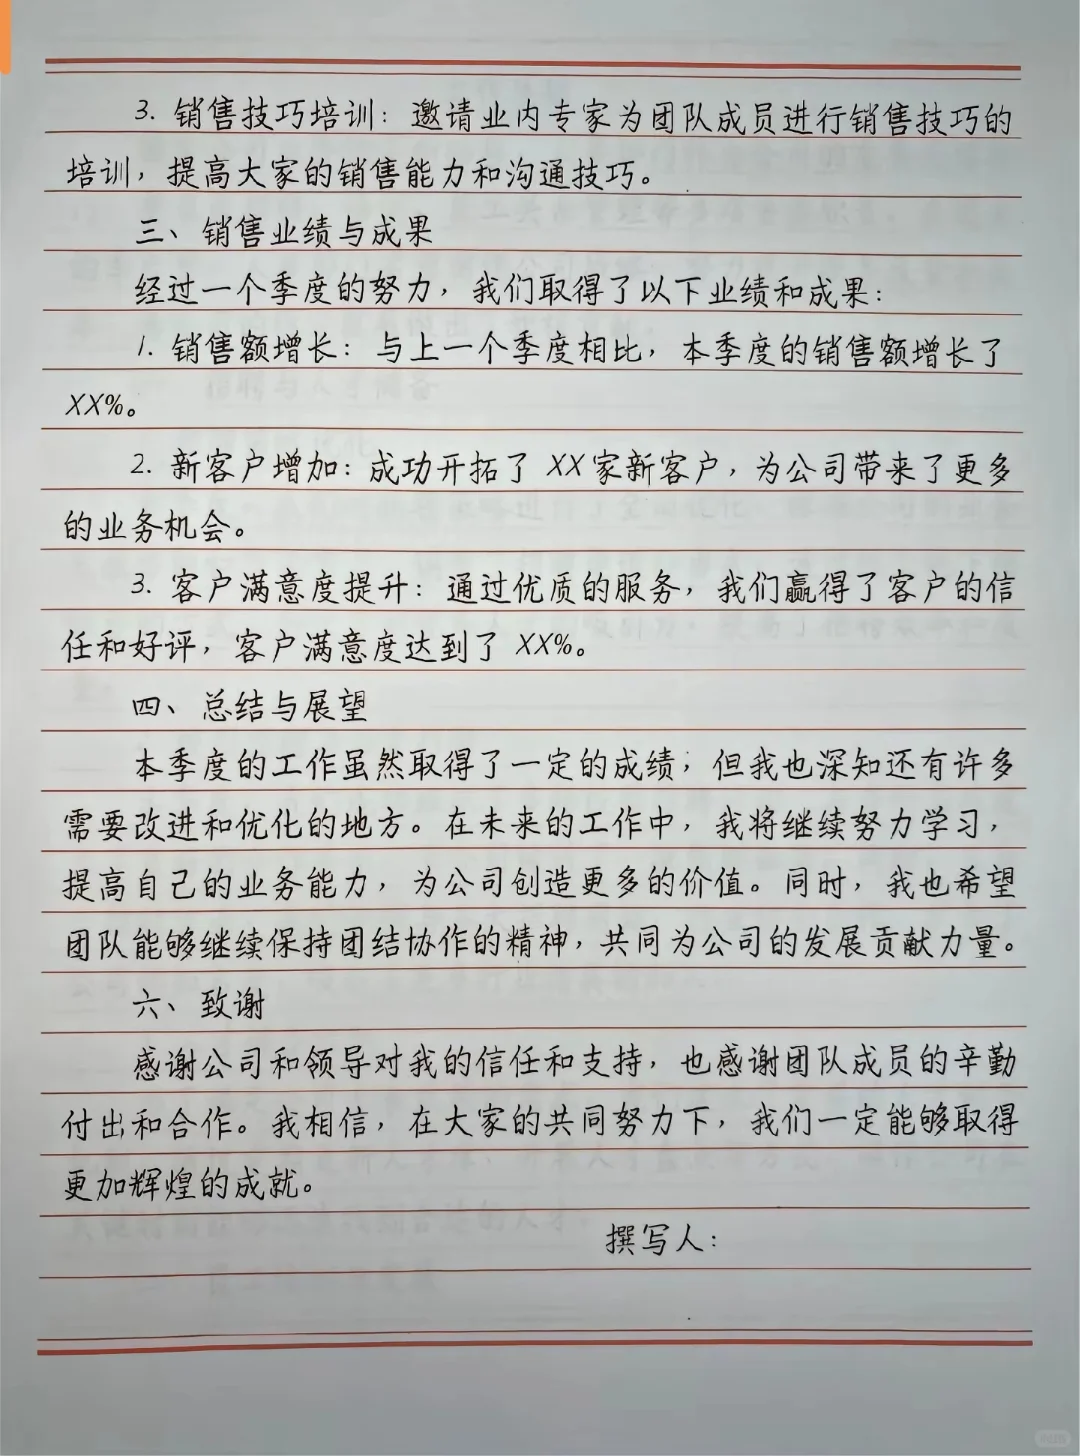 3. 销售技巧培训：邀请业内专家为团队成员进行销售技巧的
培训，提高大家的销售能力和沟通技巧。
三、销售业绩与成果
经过一个季度的努力，我们取得了以下业绩和成果：
1. 销售额增长：与上一个季度相比，本季度的销售额增长了
XX%。
2. 新客户增加：成功开拓了 XX 家新客户，为公司带来了更多
的业务机会。
3. 客户满意度提升：通过优质的服务，我们赢得了客户的信
任和好评，客户满意度达到了 XX%。
四、总结与展望
本季度的工作虽然取得了一定的成绩；但我也深知还有许多
需要改进和优化的地方。在未来的工作中，我将继续努力学习，
提高自己的业务能力，为公司创造更多的价值。同时，我也希望
团队能够继续保持团结协作的精神，共同为公司的发展贡献力量。
六、致谢
感谢公司和领导对我的信任和支持，也感谢团队成员的辛勤
付出和合作。我相信，在大家的共同努力下，我们一定能够取得
更加辉煌的成就。
撰写人：